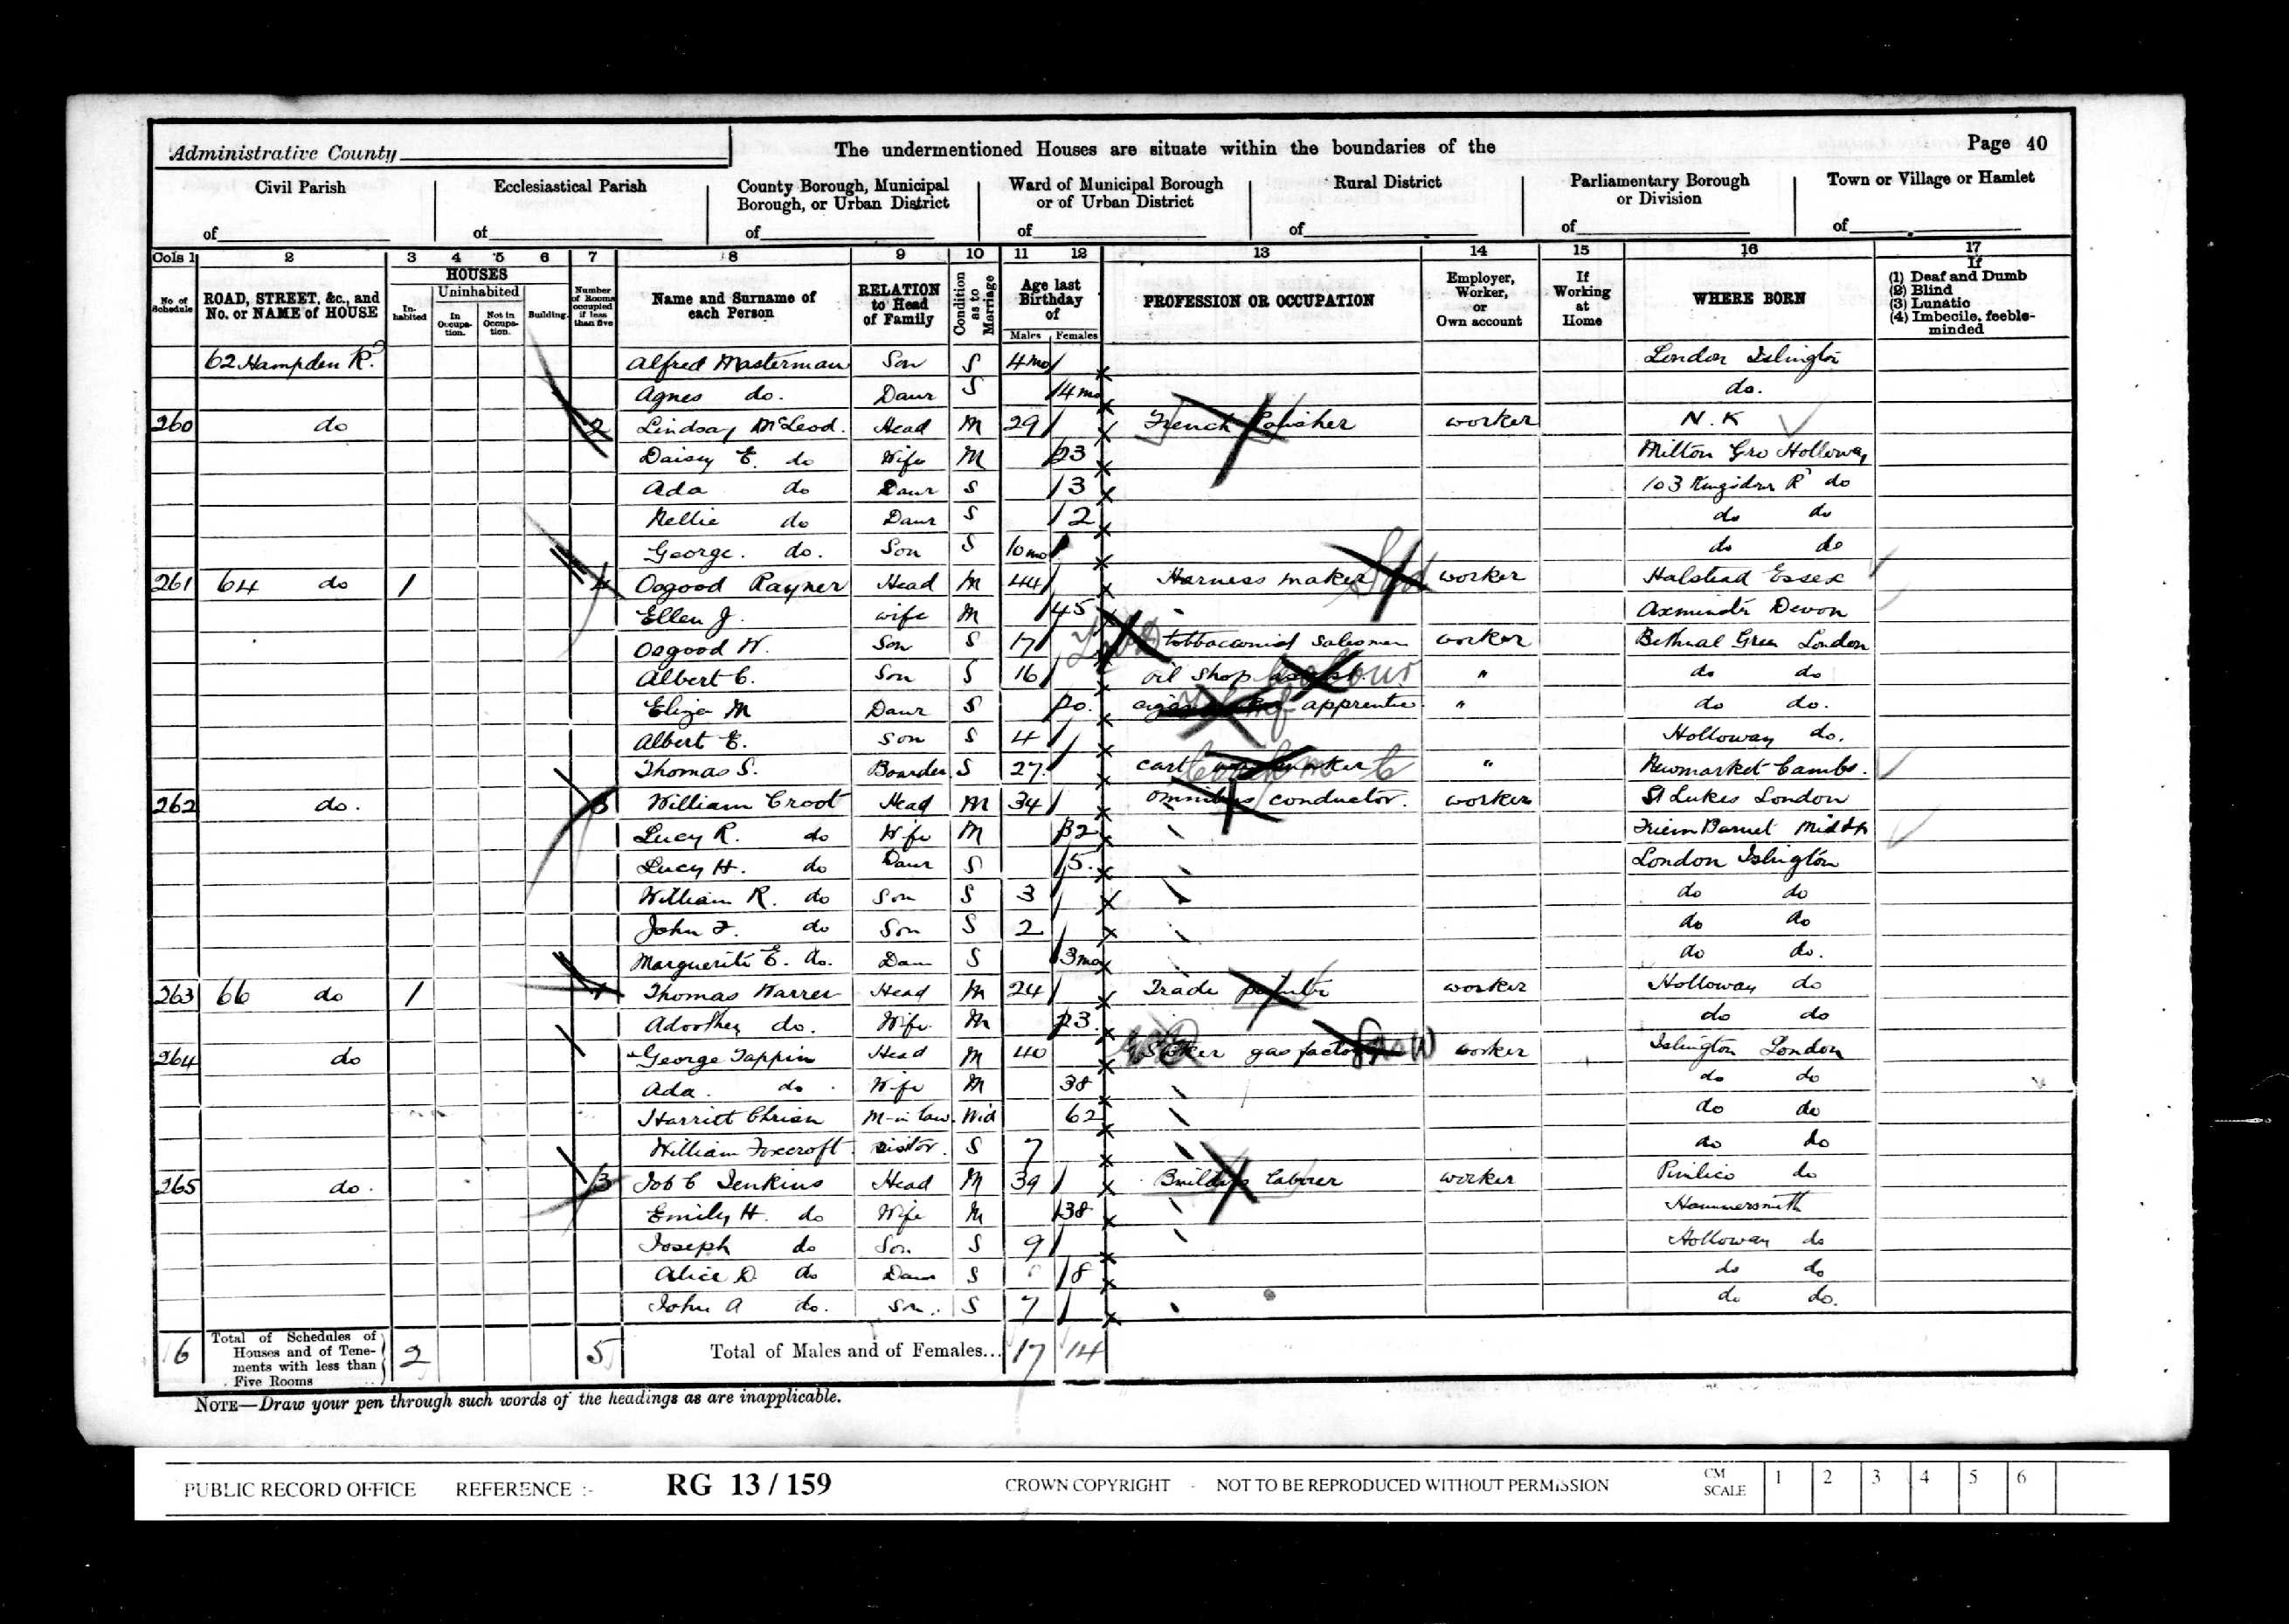 Administrative County
The undermentioned Houses are situate within the boundaries of the
Page 40
Civil Parish of
Ecclesiastical Parish of
County Borough, Municipal Borough, or Urban District of
Ward of Municipal Borough or of Urban District of
Rural District of
Parliamentary Borough or Division of
Town or Village or Hamlet of
Cols 1 2 3 4 5 6 7 8 9 10 11 12 13 14 15 16 17
No. of Schedule
ROAD, STREET, &c., and No. or NAME of HOUSE
HOUSES
In-habited
Uninhabited
In Occupa-tion.
Not in Occupa-tion.
Building.
Number of Rooms occupied if less than five
Name and Surname of each Person
RELATION to Head of Family
Condition as to Marriage
Age last Birthday of
Males Females
PROFESSION OR OCCUPATION
Employer, Worker, or Own account
If Working at Home
WHERE BORN
If
(1) Deaf and Dumb
(2) Blind
(3) Lunatic
(4) Imbecile, feeble-minded
62 Hampden Rd Alfred Masterman Son S 4mo London Islington
Agnes do. Daur S 4mo do.
260 do 2 Lindsay McLeod. Head M 29 French Polisher worker N.K
Daisy E. do Wife M 23 Milton Gro Holloway
Ada do Daur S 3 103 Rd do
Nellie do Daur S 2 do do
George. do. Son S 10mo do do
261 64 do 1 4 Osgood Rayner Head M 44 Harness maker worker Halstead Essex
Ellen J. wife M 45 Axminstr Devon
Osgood W. Son S 17 tobbaconist salesman worker Bethnal Green London
Albert C. Son S 16 oil shop " do do
Eliza M Daur S 20. apprentice " do do.
Albert E. Son S 4 Holloway do.
Thomas S. Boarder S 27. cart " Newmarket Cambs.
262 do. 3 William Croot Head M 34 Omnibus conductor. worker St Lukes London
Lucy R. do Wife M 32 Friern Barnet Middx
Lucy H. do Daur S 5. London Islington
William R. do Son S 3 do do
John F. do Son S 2 do do
Marguerite E. do. Daur S 3mo do do.
263 66 do 1 4 Thomas Warrer Head M 24 Trade worker Holloway do
Adorthey do. Wife. M 23. do do
264 do George Tappin Head M 40 Stoker gas factory worker Islington London
Ada. do Wife M 38 do do
Harriet M-in law. Wid 62 do do
William Foxcroft visitor. S 7 do do
265 do. 3 Job C Jenkins Head M 39 Builders laborer worker Pimlico do
Emily H. do Wife M 38 Hammersmith
Joseph do Son S 9 Holloway do
Alice D do Daur S 8 do do
John A do. Son. S 7 do do.
6 Total of Schedules of Houses and of Tene-ments with less than Five Rooms 2 5 Total of Males and of Females... 17 14
NOTE—Draw your pen through such words of the headings as are inapplicable.
PUBLIC RECORD OFFICE REFERENCE :- RG 13 / 159 CROWN COPYRIGHT - NOT TO BE REPRODUCED WITHOUT PERMISSION CM SCALE 1 2 3 4 5 6